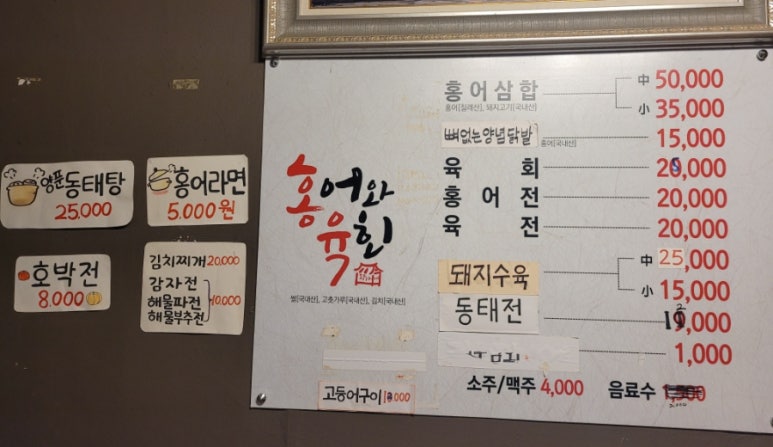 양푼동태탕
25,000
홍어라면
5.000원
호박전
8.000
김치찌개 20,000
감자전
해물파전 10.000
해물부추전
홍어와
육회
쌀[국내산], 고춧가루[국내산], 김치[국내산]
홍어삼합 中 50,000
홍어[칠레산], 돼지고기[국내산] 小 35,000
뼈없는양념닭발 15,000
홍어[국내산]
육회 25,000
홍어전 20,000
육전 20,000
돼지수육 中 25,000
小 15,000
동태전 12,000
1,000
소주/맥주 4,000 음료수
고등어구이